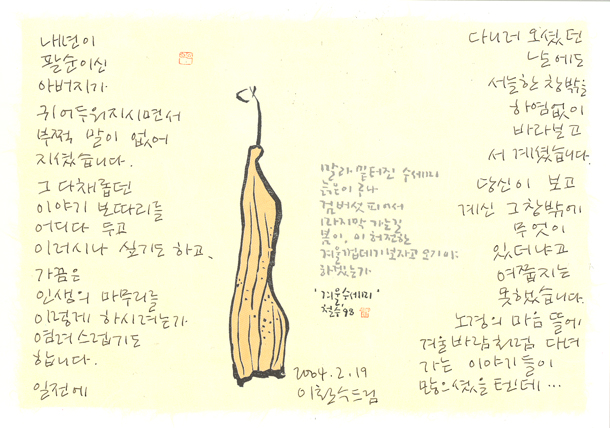 내년이
팔순이신
아버지가
귀 어두워지시면서
부쩍 말이 없어
지셨습니다.
그 다채롭던
이야기 보따리들
어디다 두고
이러시나 싶기도 하고,
가끔은
인생의 마무리를
이렇게 하시려는가
염려스럽기도
합니다.
일전에
다니러 오셨던
날에도
서늘한 창밖을
하염없이
바라보고
서 계셨습니다.
당신이 보고
계신 그 창밖에
무엇이
있더냐고
여쭙지는
못했습니다.
노경의 마음 뜰에
겨울바람처럼 다녀
가는 이야기들이
많으셨을 텐데...
말라 밑터진 수세미
늙은이 하나
검버섯 피어서
마지막 가는길
봄이, 이 허전한
겨울껍데기 보자고 오기야
하겠는가
'겨울수세미'
철수 98
2004. 2. 19
이철수드림